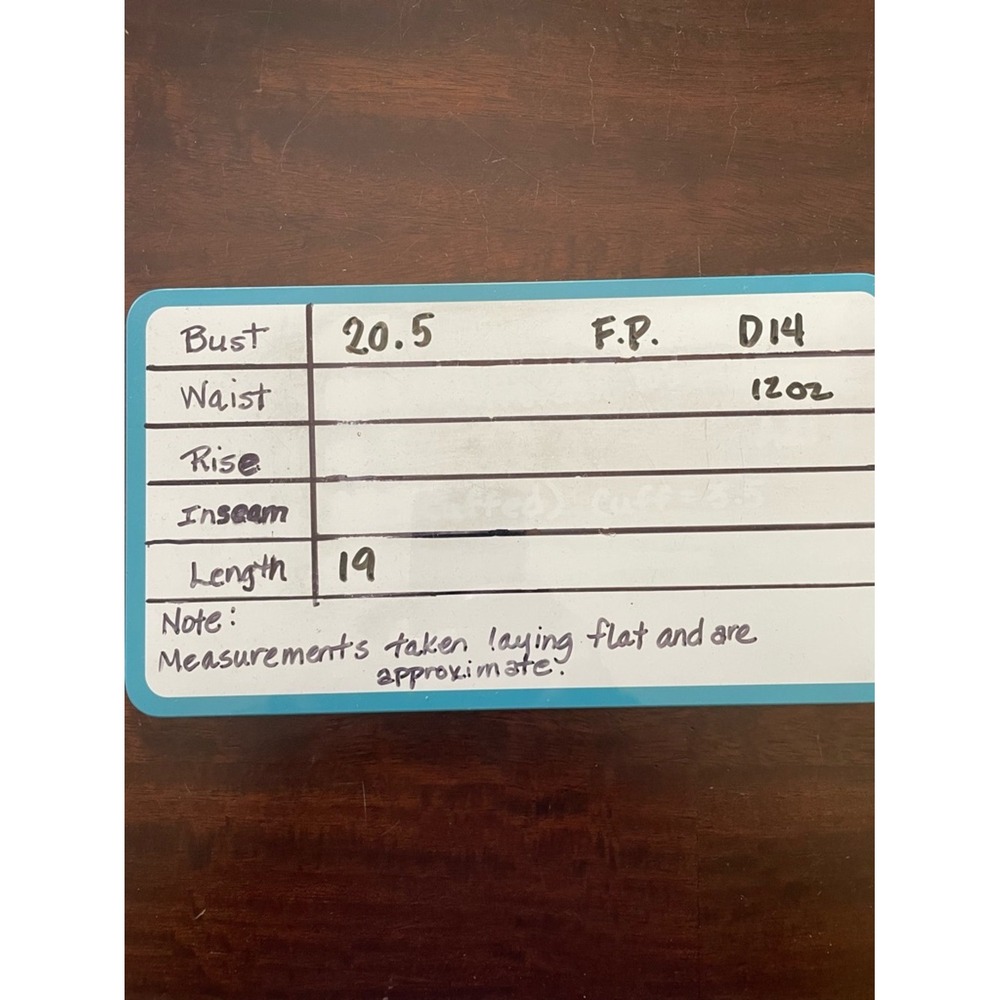 Bust 20.5 F.P. D14
Waist 12oz
Rise
Inseam
Length 19
Note:
Measurements taken laying flat and are
approximate.